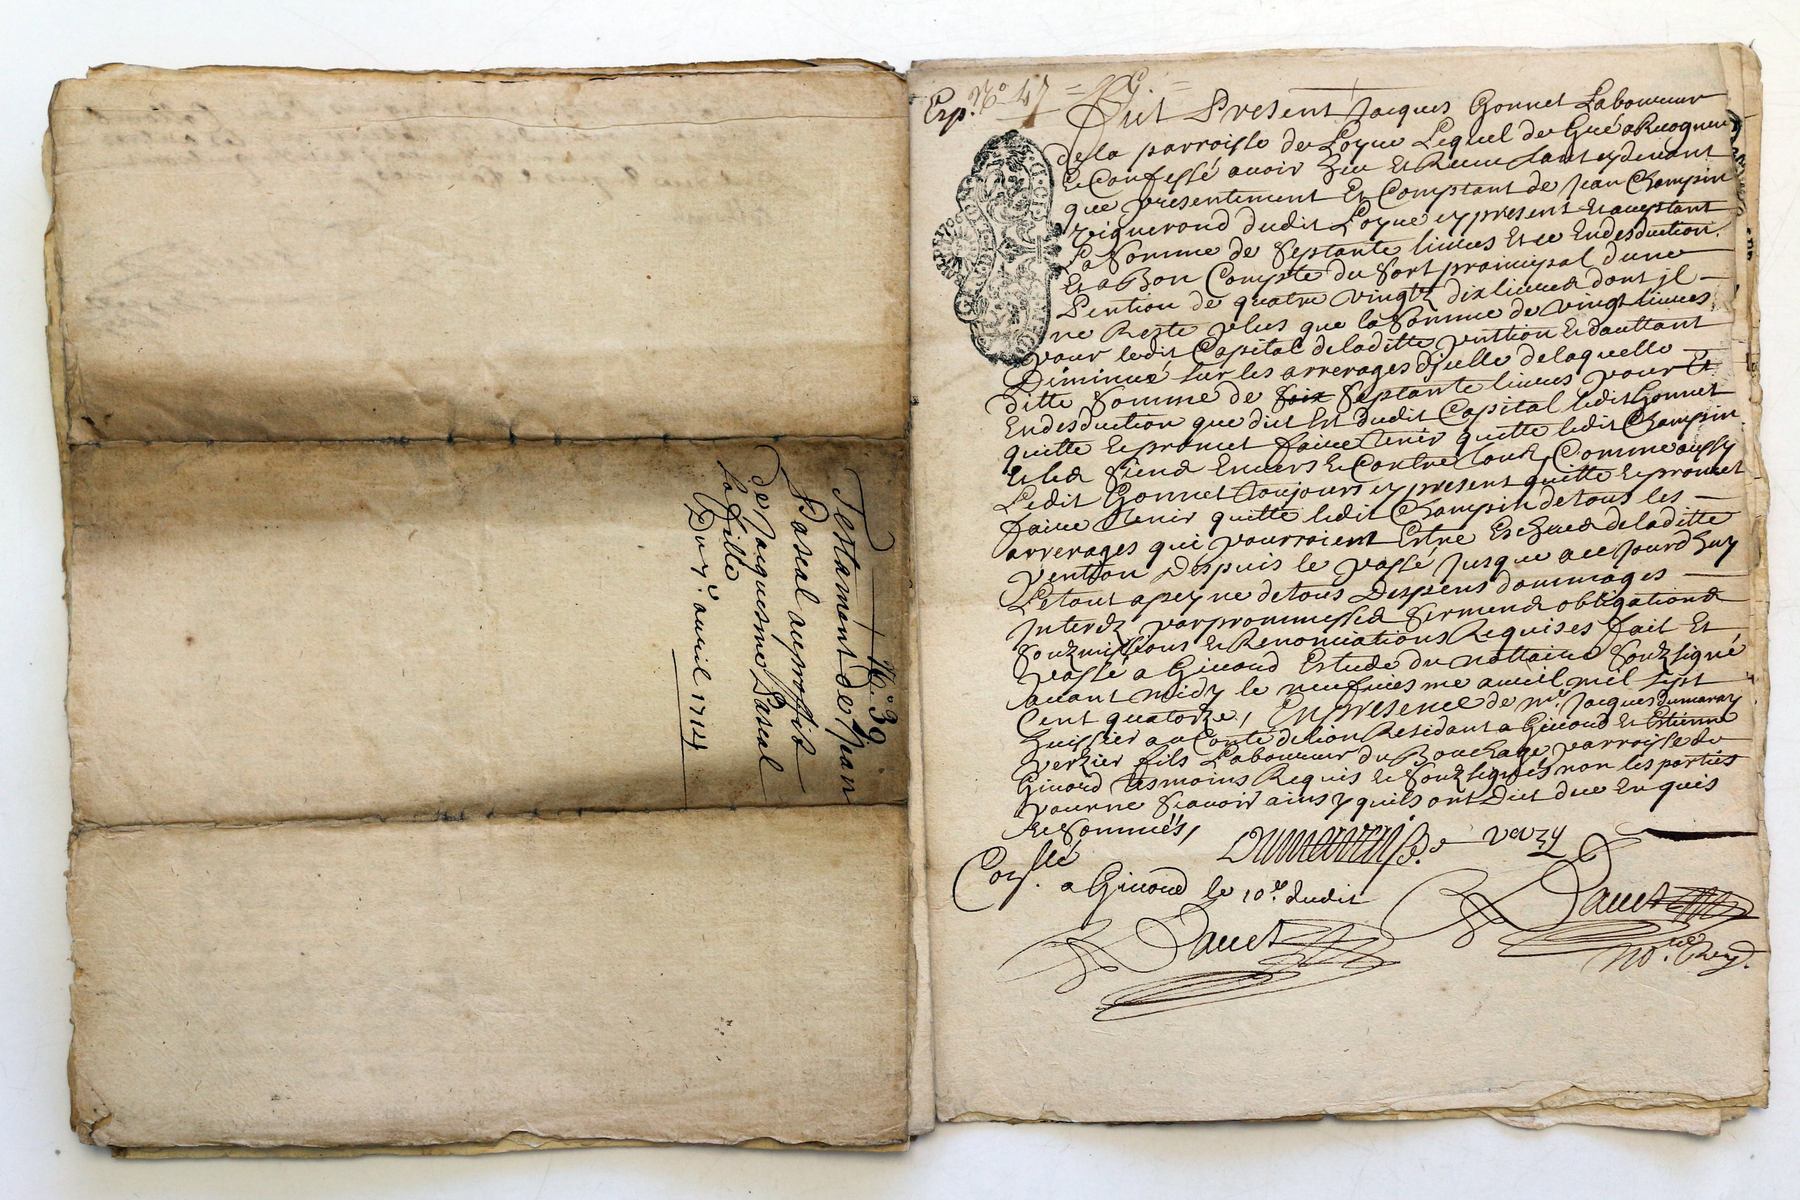 N.° 39
Testament de Jean
Pascal au proffit
de Jacquesme Pascal
sa fille
Du 7.e auril 1714
Exp. N.° 47
Fut Present Jacques Gonnet Laboureur
de la parroisse de Loyne Lequel de Gré a Recogneu
Et Confessé auoir Heu Et Receu tant cy deuant
que presentement Et Comptant de Jean Champin
vigneron dudit Loyne cy present Et acceptant
La Somme de Septante liures Et ce En desduction
Et a Bon Compte du Sort prainsipal d'une
Pention de quatre vingtz dix liures dont jl
ne Reste plus que la Somme de vingt liures
pour ledit Capital de laditte pention Et d'auttant
Diminué sur les arrerages d'jcelle de laquelle
ditte Somme de Septante liures pour Et
En desduction que dit Est dudit Capital ledit Gonnet
quitte Et promet faire tenir quitte ledit Champin
Et les Siens Enuers Et Contre tous, Comme aussy
Ledit Gonnet toujours cy present quitte Et promet
faire tenir quitte ledit Champin de tous les
arrerages qui pourroient Estre Escheus de laditte
pention Despuis le passé Jusque a ce jourd'huy
Le tout a peyne de tous Despens dommages
Interestz par prommesses Serments obligations
Souzmissions Et Renonciations Requises fait Et
passé a Giuord Estude du nottaire Souzsigné
auant midy le neufuiesme auril mil sept
Cent quatorze, En presence de m.re Jacques Dumaray
huissier au Conté de lion Residant a Giuord Et Estienne
verzier fils Laboureur du Bouchage parroisse de
Giuord tesmoins Requis Et Souzsignés non les parties
pour ne Scauoir ainsy quils ont Dit de ce Enquis
Et Sommés,
a Giuord le 10.e dudit